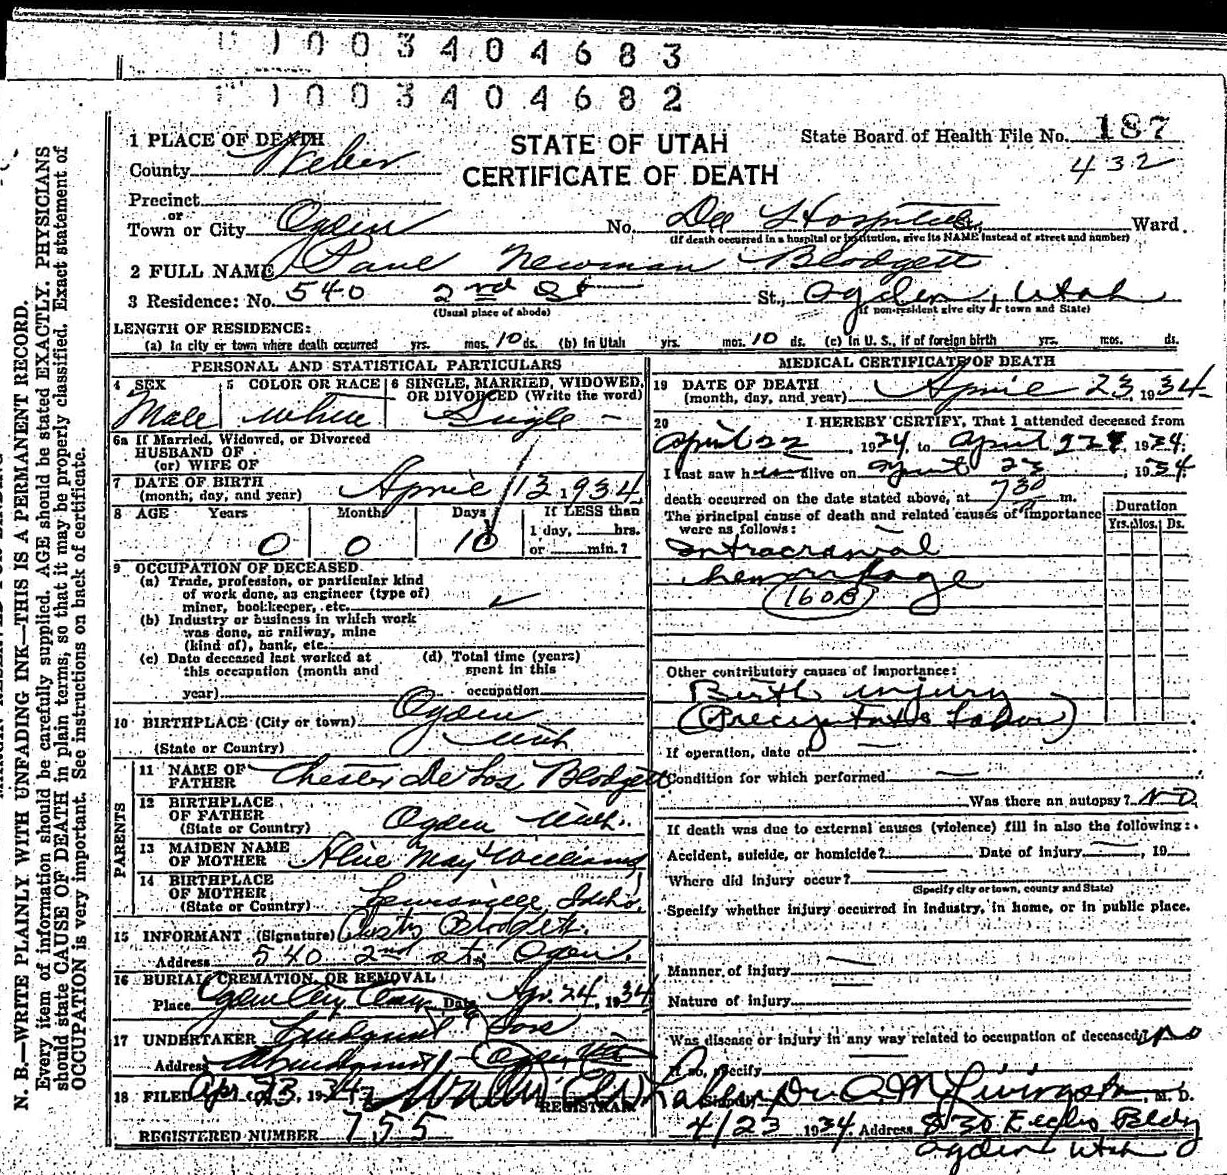 1003404683
1003404682
STATE OF UTAH
CERTIFICATE OF DEATH
State Board of Health File No. 187
432
1 PLACE OF DEATH
County Weber
Precinct
or
Town or City Ogden No. Dee Hospital St., Ward.
(If death occurred in a hospital or institution, give its NAME instead of street and number)
2 FULL NAME Paul Newman Blodgett
3 Residence: No. 540 2nd St St., Ogden, Utah
(Usual place of abode) (If non-resident give city or town and State)
LENGTH OF RESIDENCE:
(a) In city or town where death occurred yrs. mos. 10 ds. (b) In Utah yrs. mos. 10 ds. (c) In U. S., if of foreign birth yrs. mos. ds.
PERSONAL AND STATISTICAL PARTICULARS
4 SEX Male
5 COLOR OR RACE White
6 SINGLE, MARRIED, WIDOWED, OR DIVORCED (Write the word) Single
6a If Married, Widowed, or Divorced
HUSBAND OF
(or) WIFE OF
7 DATE OF BIRTH
(month, day, and year) April 13, 1934
8 AGE Years Months Days If LESS than
1 day, hrs.
0 0 10 or min.?
9 OCCUPATION OF DECEASED
(a) Trade, profession, or particular kind
of work done, as engineer (type of)
miner, bookkeeper, etc.
(b) Industry or business in which work
was done, as railway, mine
(kind of), bank, etc.
(c) Date deceased last worked at
this occupation (month and
year)
(d) Total time (years)
spent in this
occupation
10 BIRTHPLACE (City or town) Ogden
(State or Country) Utah
PARENTS
11 NAME OF
FATHER Chester De Los Blodgett
12 BIRTHPLACE
OF FATHER
(State or Country) Ogden Utah.
13 MAIDEN NAME
OF MOTHER Alice May Williams
14 BIRTHPLACE
OF MOTHER
(State or Country) Lewisville, Idaho
15 INFORMANT (Signature) Blodgett
Address 540 2nd st. Ogden.
16 BURIAL, CREMATION, OR REMOVAL
Place Ogden City Cem Date Apr. 24, 1934
17 UNDERTAKER Lindquist & Sons
Address Ogden, Utah
18 FILED Apr 23, 1934
REGISTRAR
REGISTERED NUMBER 755
MEDICAL CERTIFICATE OF DEATH
19 DATE OF DEATH
(month, day, and year) April 23, 1934
20 I HEREBY CERTIFY, That I attended deceased from
April 22, 1934, to April 23, 1934.
I last saw him alive on April 23, 1934
death occurred on the date stated above, at 730 m.
The principal cause of death and related causes of importance
were as follows:
Duration
Yrs. Mos. Ds.
Intracranial
hemorrhage
(160B)
Other contributory causes of importance:
Birth injury
(Precipitate Labor)
If operation, date of
Condition for which performed
Was there an autopsy? No
If death was due to external causes (violence) fill in also the following:
Accident, suicide, or homicide? Date of injury, 19
Where did injury occur?
(Specify city or town, county and State)
Specify whether injury occurred in industry, in home, or in public place.
Manner of injury
Nature of injury
Was disease or injury in any way related to occupation of deceased? No
If so, specify
Dr. O. M. Livingston, M. D.
4/23 1934. Address 830 Eccles Bldg
Ogden Utah
N. B.—WRITE PLAINLY WITH UNFADING INK—THIS IS A PERMANENT RECORD.
Every item of information should be carefully supplied. AGE should be stated EXACTLY. PHYSICIANS
should state CAUSE OF DEATH in plain terms, so that it may be properly classified. Exact statement of
OCCUPATION is very important. See instructions on back of certificate.